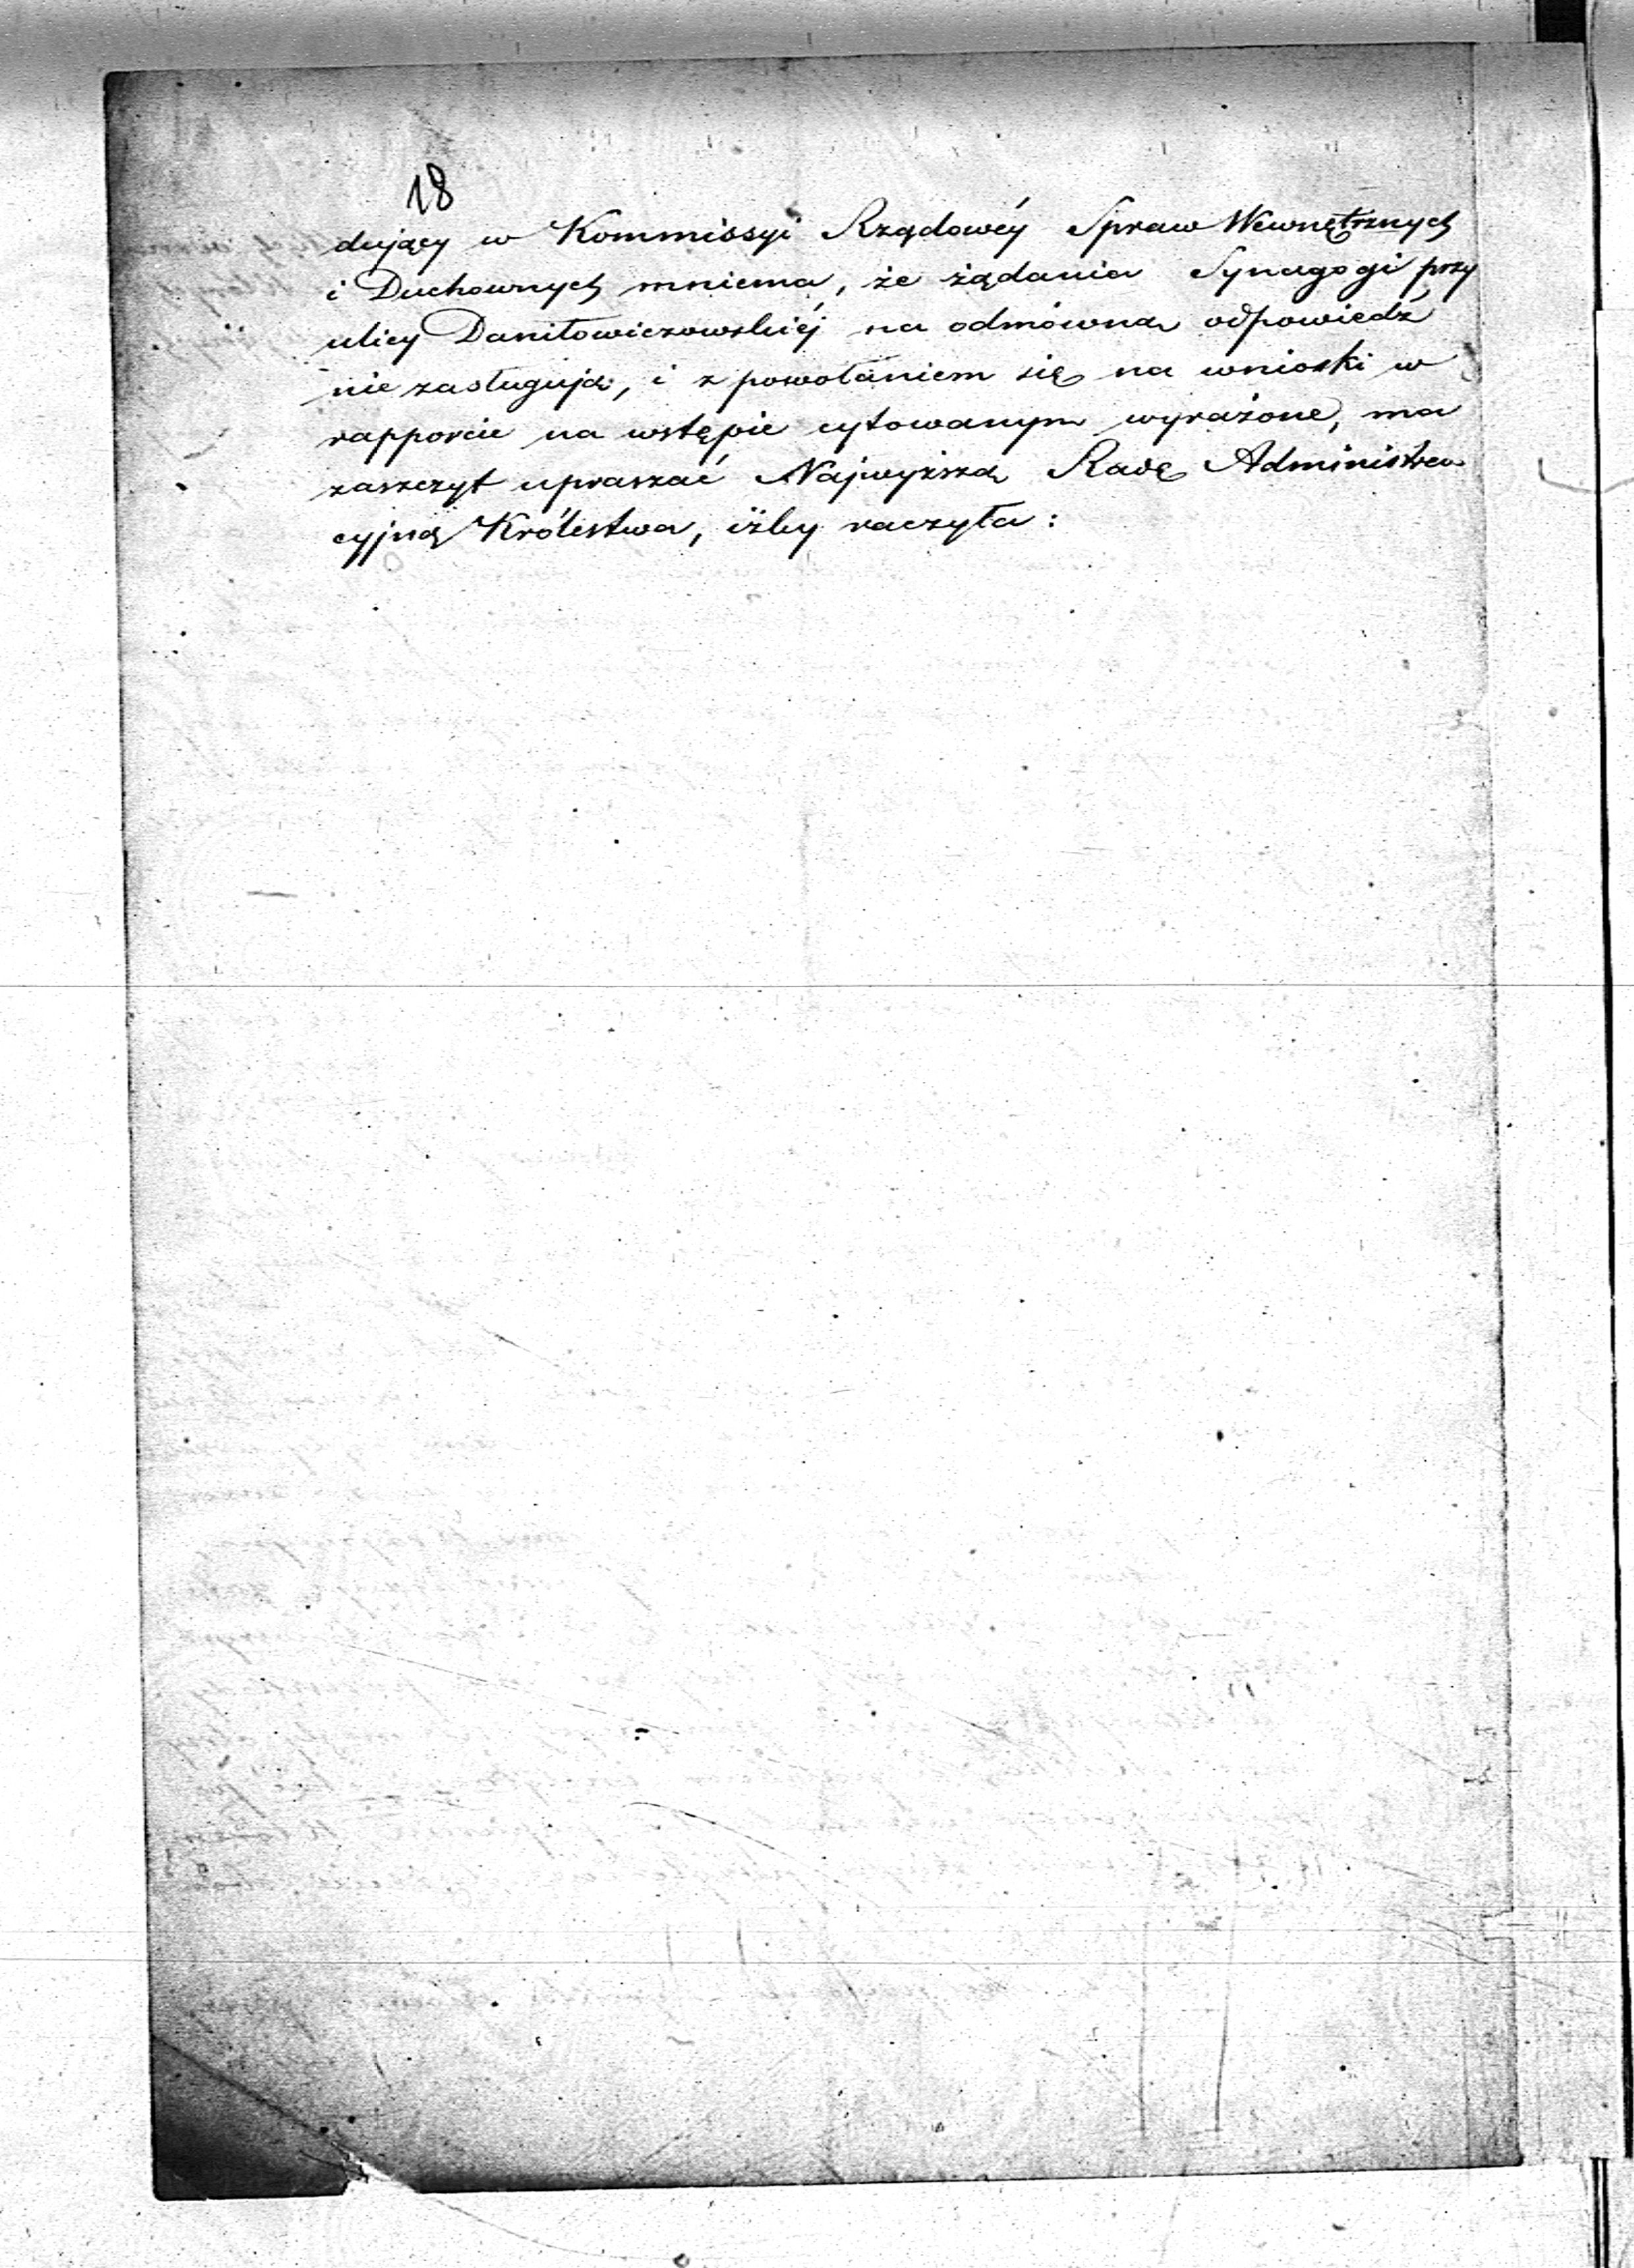 18
dujący w Kommissyi Rządowéy Spraw Wewnętrznych
i Duchownych mniema, że żądania Synagogi przy
ulicy Daniłowiczowskiéj na odmówną odpowiedź
nie zasługują, i z powołaniem się na wnioski w
rapporcie na wstępie cytowanym wyrażone, ma
zaszczyt upraszać Najwyższą Radę Administra
cyjną Królestwa, iżby raczyła: